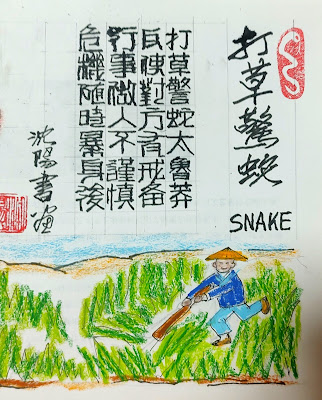 打草驚蛇
SNAKE
打草警蛇太魯莽
反使對方有戒备
行事做人不謹慎
危機隨時暴身後
沈陽書画